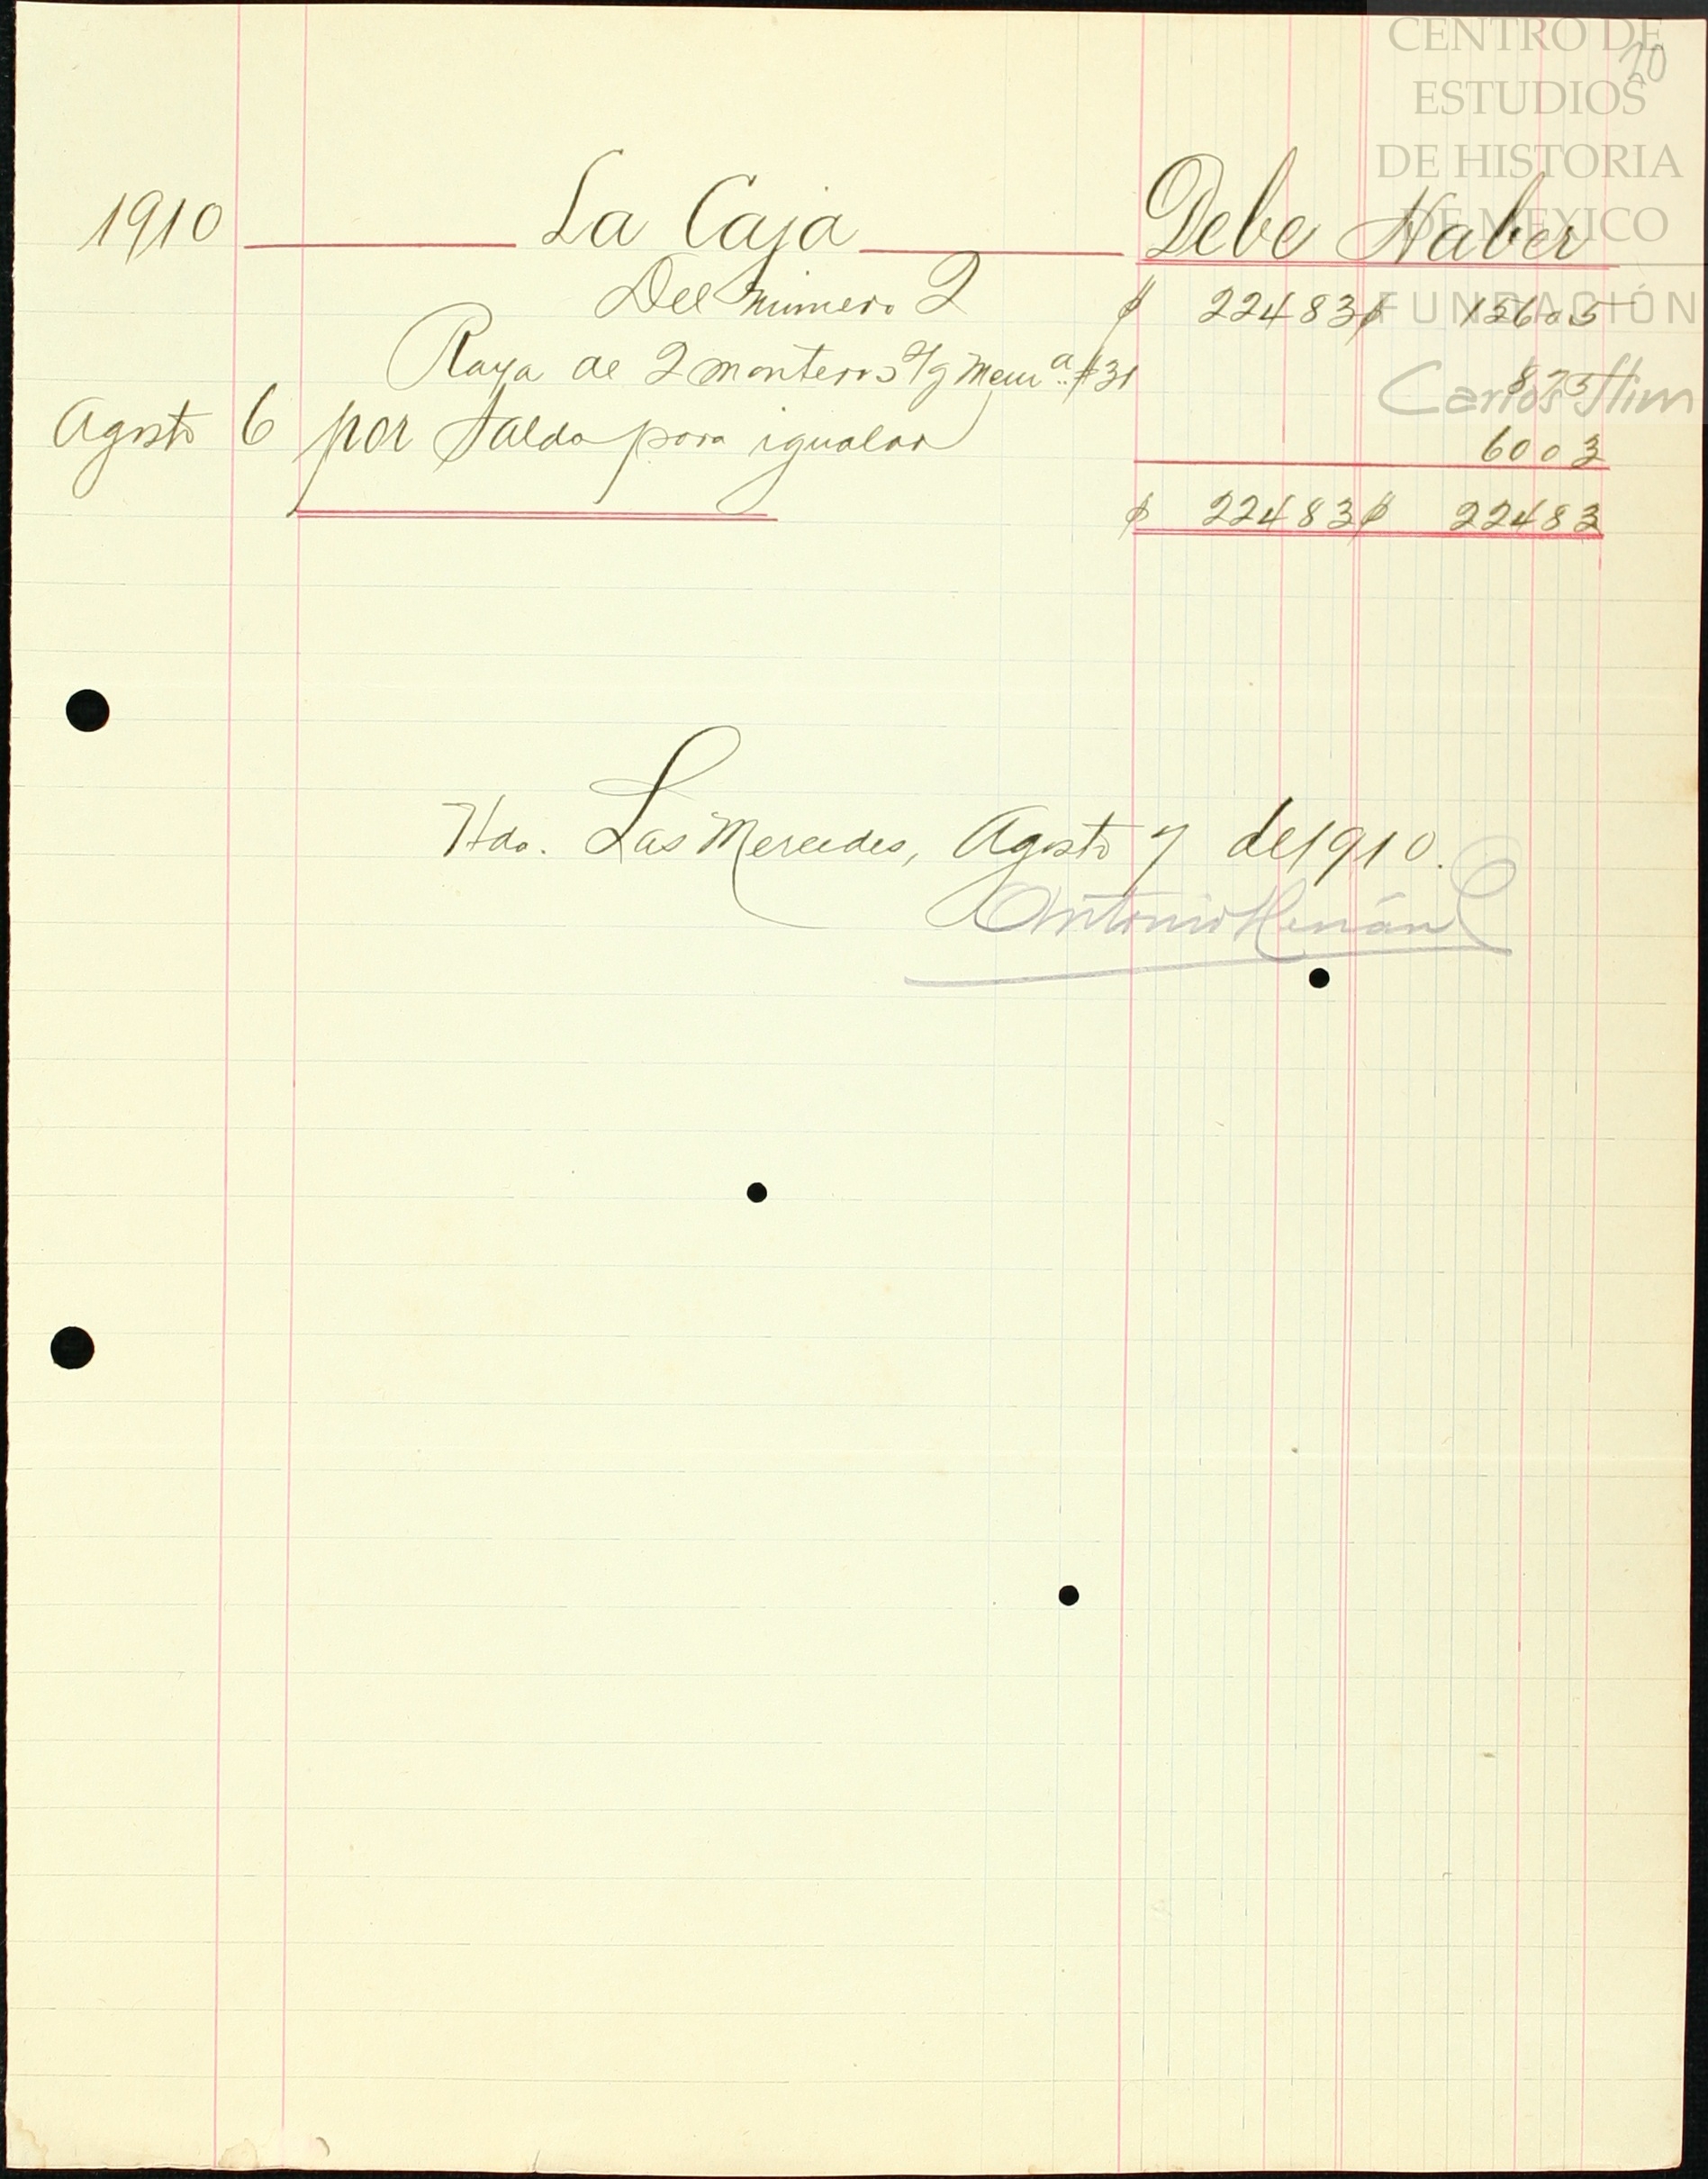 CENTRO DE
ESTUDIOS
DE HISTORIA
DE MEXICO
FUNDACIÓN
Carlos Slim
20
1910 La Caja Debe Haber
Del número 2 $ 22483 $ 15605
Raya de 2 monteros s/g Mem a. #31 875
Agosto 6 por saldo para igualar 6003
$ 22483 $ 22483
Hda. Las Mercedes, Agosto 7 de 1910.
Antonio